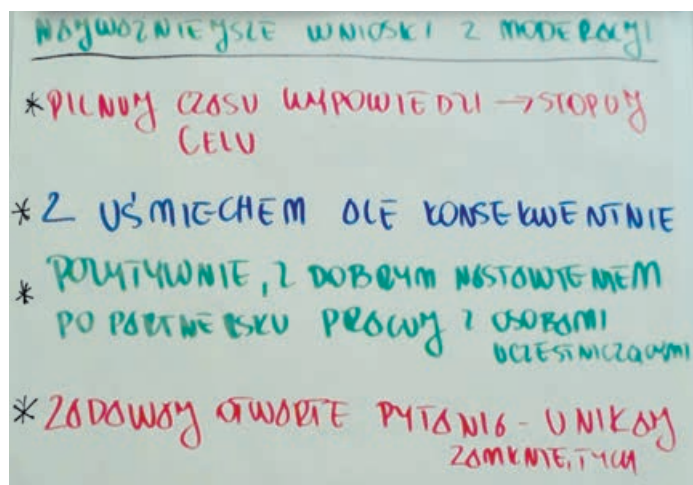 NAJWAŻNIEJSZE WNIOSKI Z MODERACJI
* PILNUJ CZASU WYPOWIEDZI → STOPUJ
CELU
* Z UŚMIECHEM ALE KONSEKWENTNIE
* POZYTYWNIE, Z DOBRYM NASTAWIENIEM
PO PARTNERSKU PRACUJ Z OSOBAMI
UCZESTNICZĄCYMI
* ZADAWAJ OTWARTE PYTANIA - UNIKAJ
ZAMKNIĘTYCH